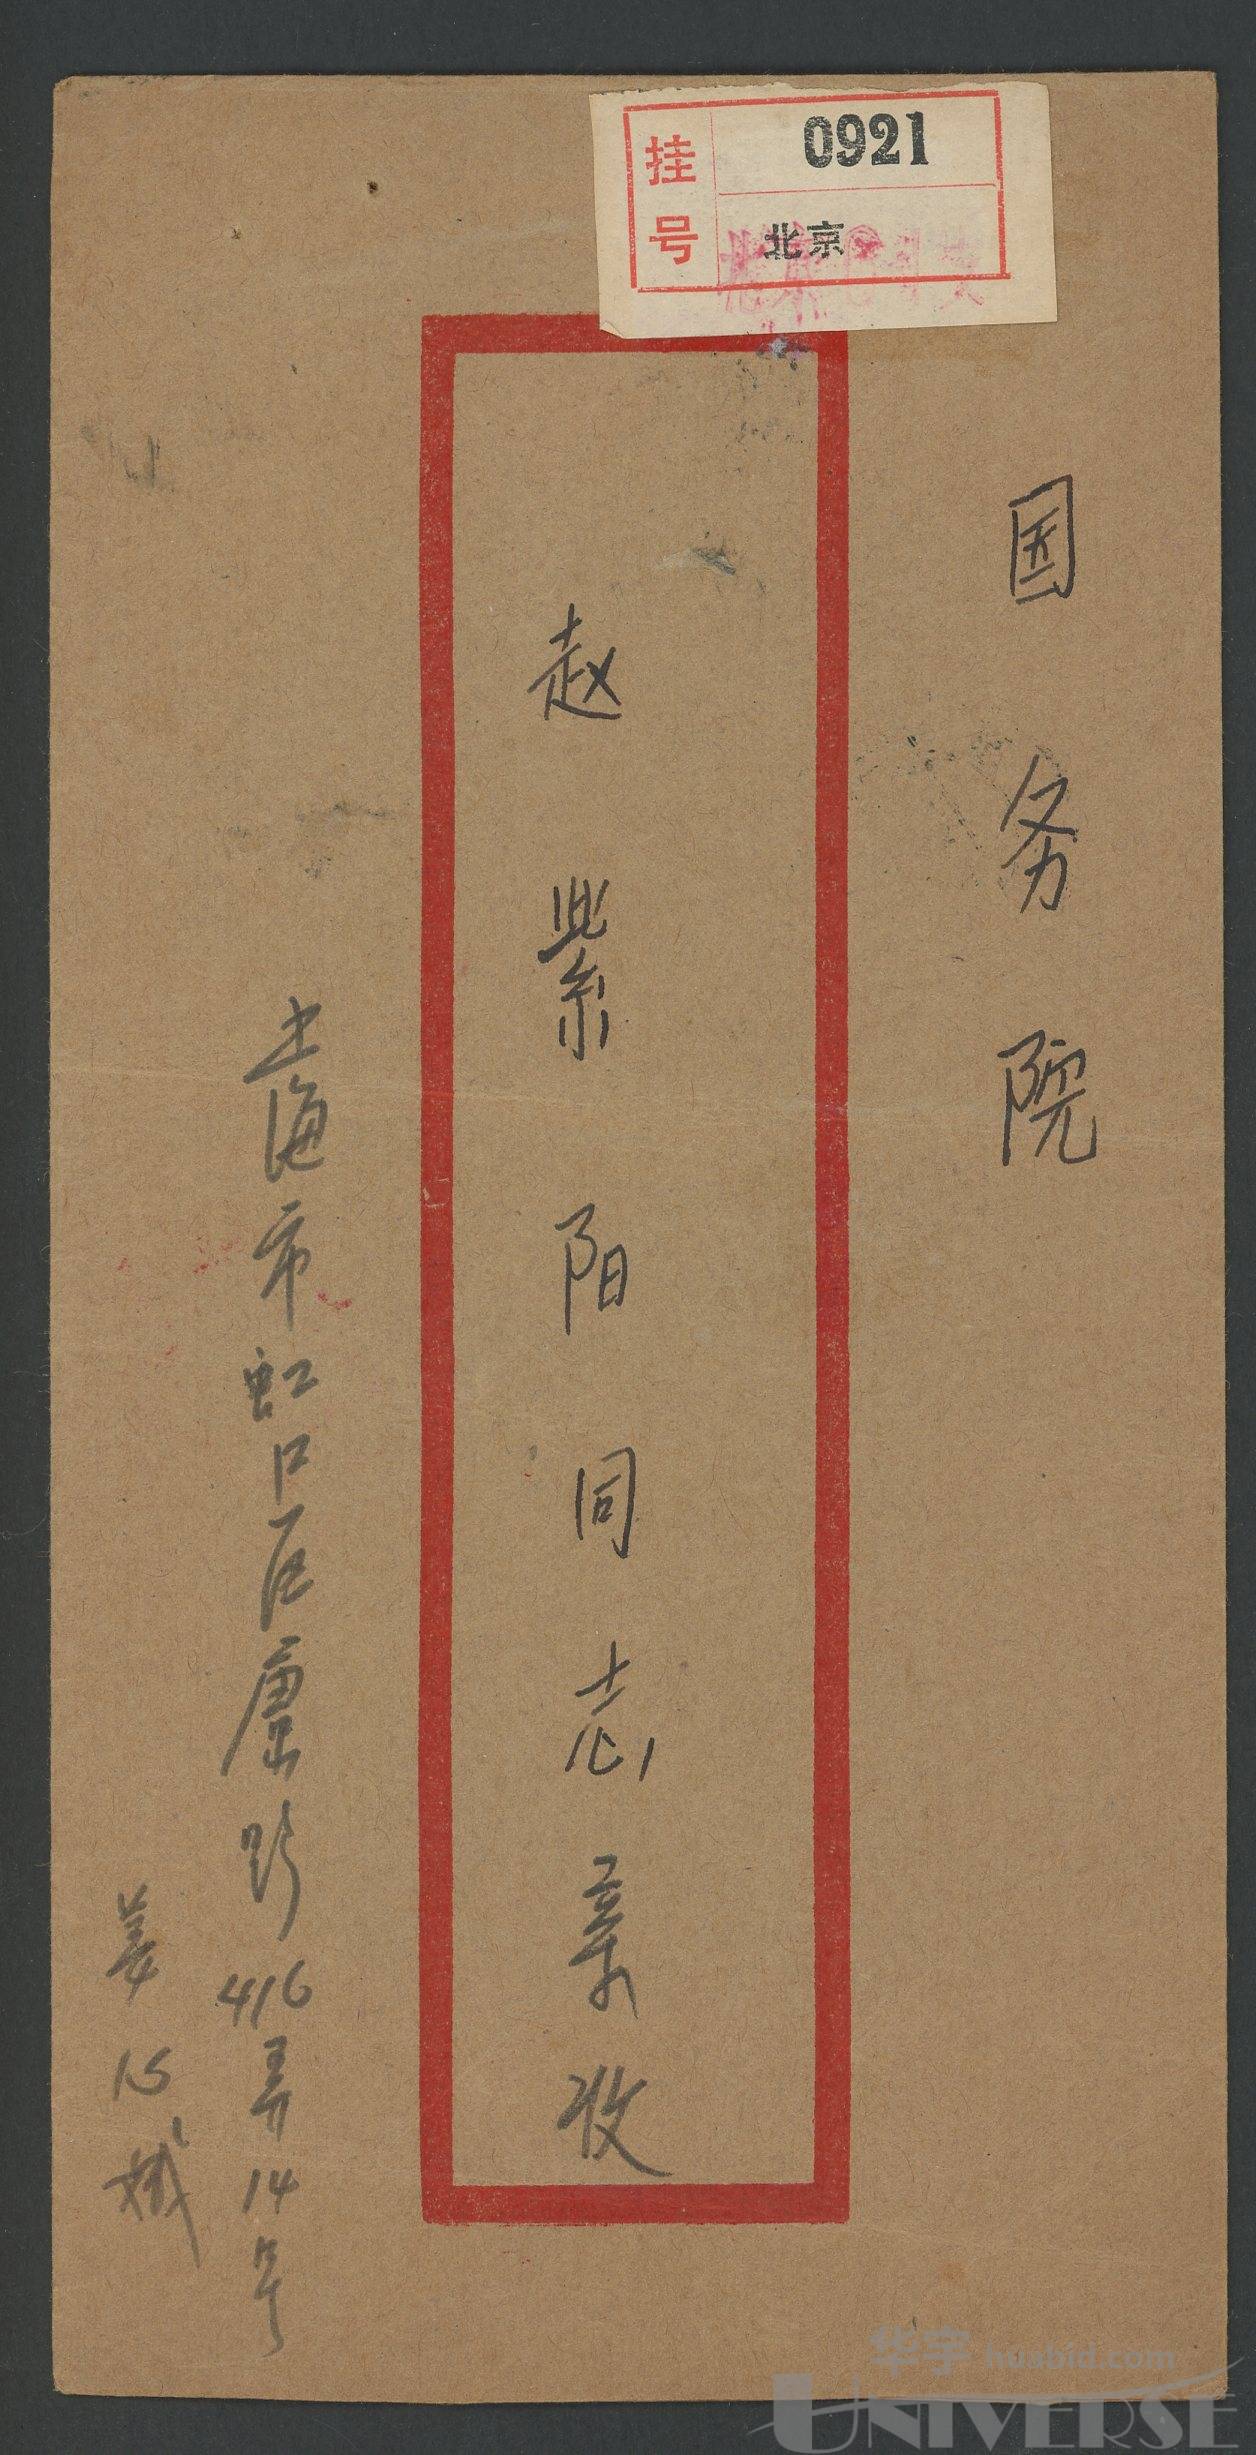 挂号
0921
北京
国务院
赵紫阳同志亲收
上海市虹口区唐山路416弄14号
姜
华宇 huabid.com
UNIVERSE